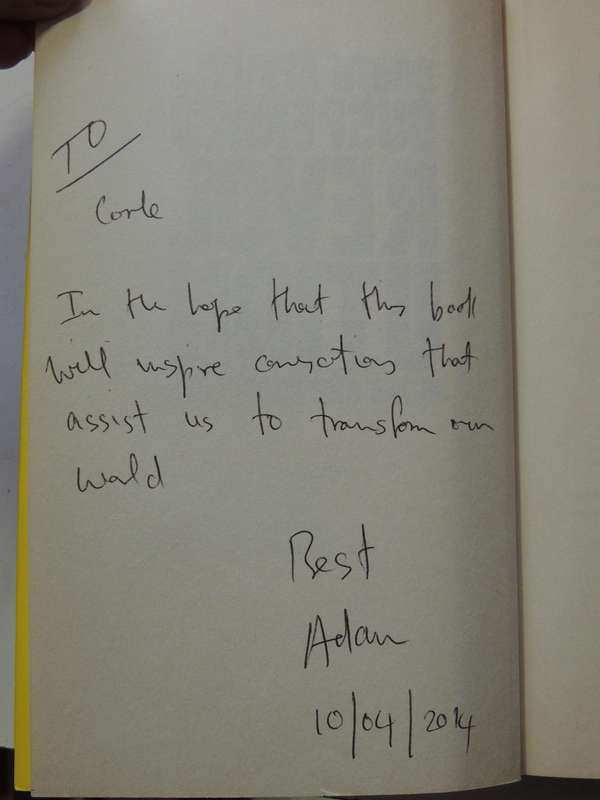 TO
Corle
In the hope that this book
will inspire conversations that
assist us to transform our
world
Best
Adam
10/04/2014